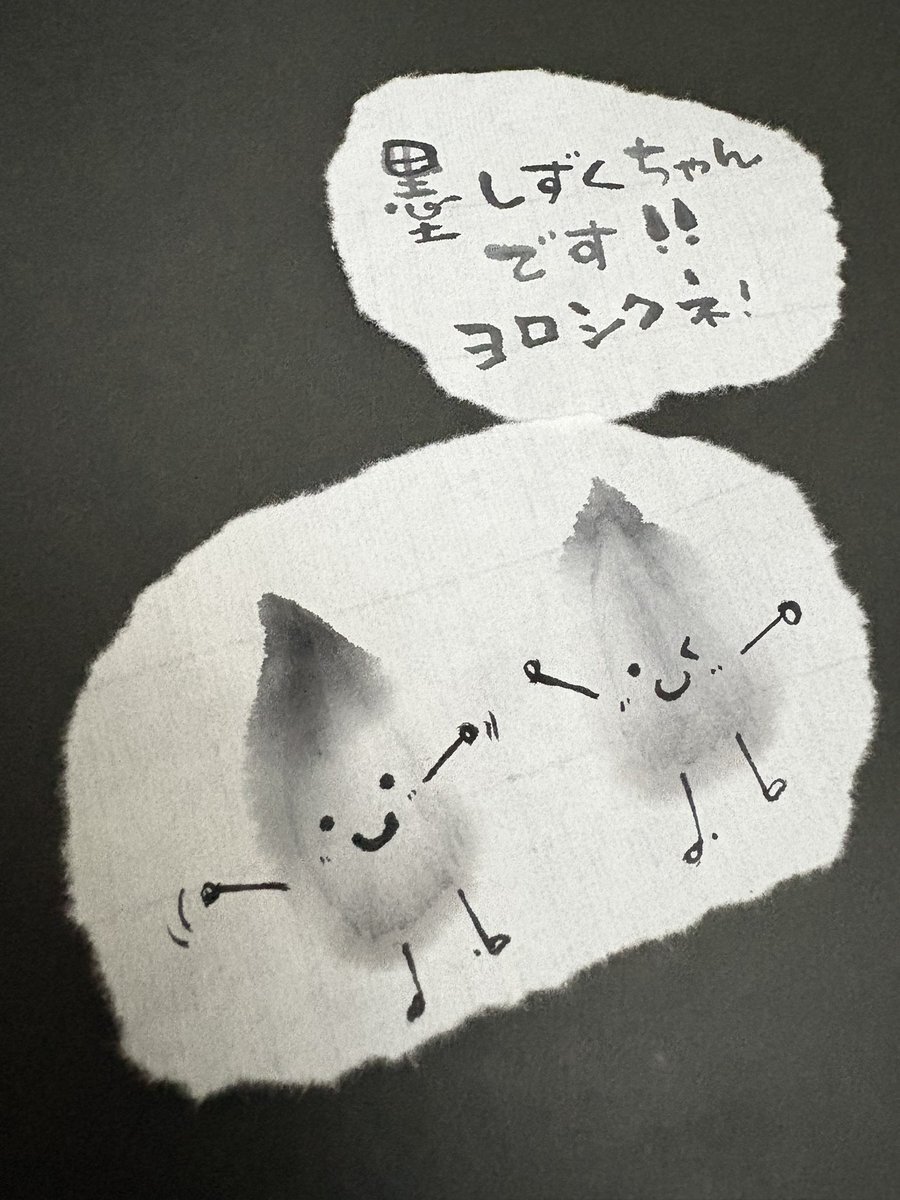 墨しずくちゃん
です!!
ヨロシクネ!